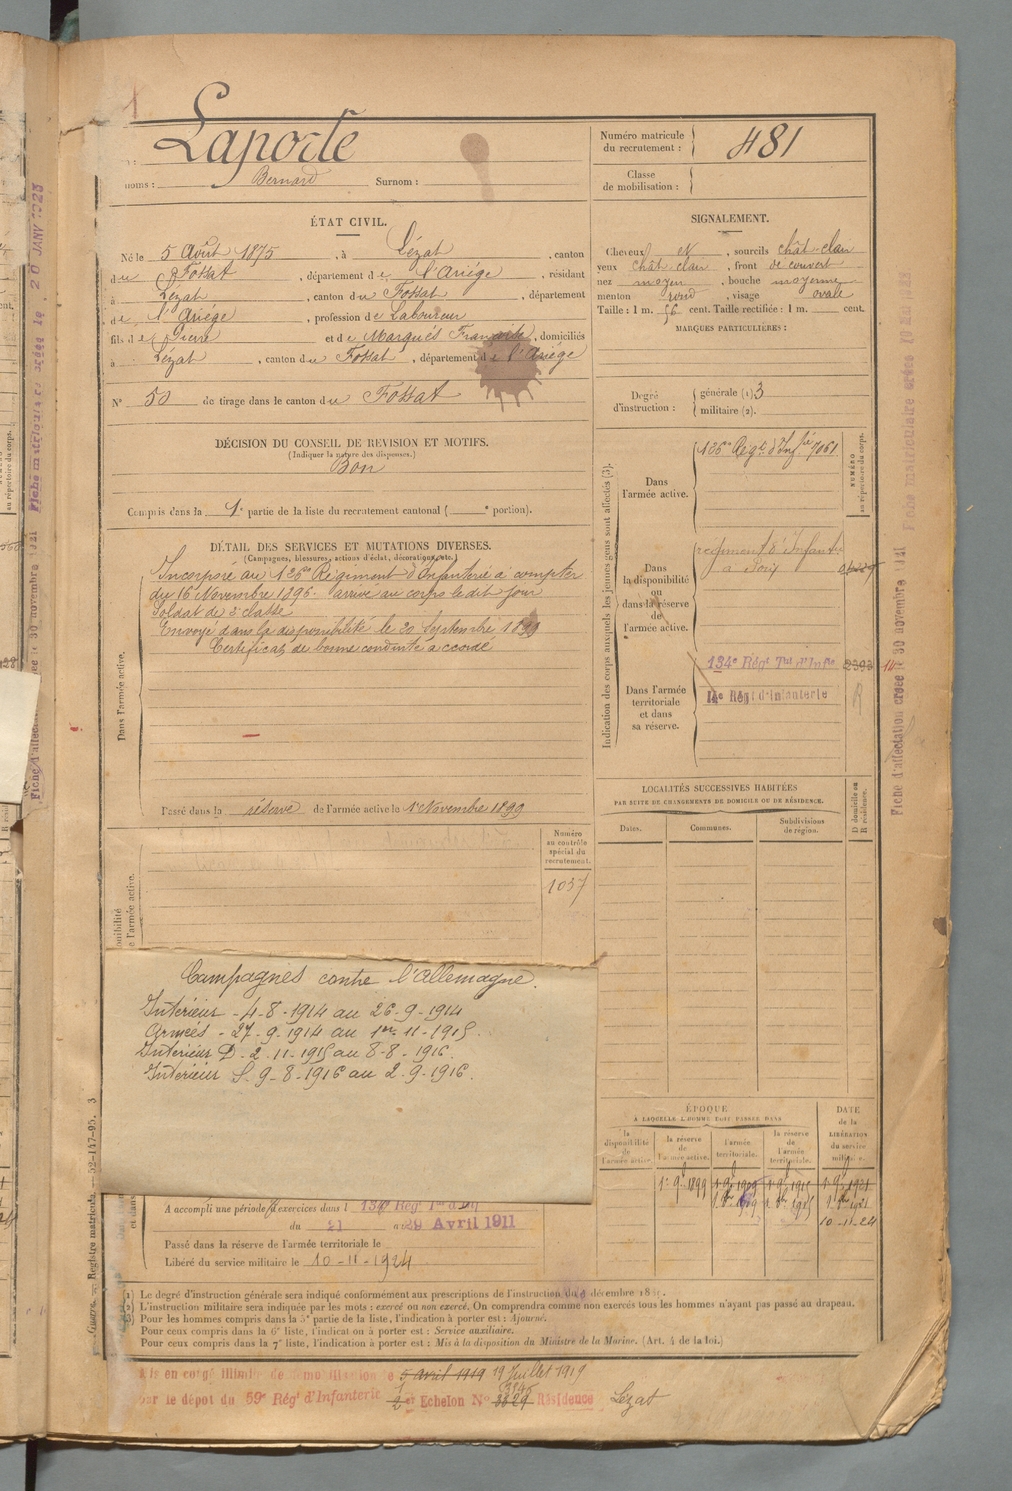 Laporte
noms : Bernard Surnom :
Numéro matricule du recrutement : 481
Classe de mobilisation :
ÉTAT CIVIL.
Né le 5 Août 1875, à Lézat, canton
du Fossat, département de l'Ariège, résidant
à Lézat, canton du Fossat, département
de l'Ariège, profession de Laboureur
fils de Pierre et de Marquès Françoise, domiciliés
à Lézat, canton du Fossat, département de l'Ariège
N° 50 de tirage dans le canton du Fossat
SIGNALEMENT.
Cheveux et, sourcils chât-clair
yeux chât-clair, front découvert
nez moyen, bouche moyenne
menton rond, visage ovale
Taille : 1 m. 56 cent. Taille rectifiée : 1 m. cent.
MARQUES PARTICULIÈRES :
Degré d'instruction : générale (1) 3
militaire (2).
DÉCISION DU CONSEIL DE REVISION ET MOTIFS.
(Indiquer la nature des dispenses.)
Bon
Compris dans la 1e partie de la liste du recrutement cantonal ( e portion).
DÉTAIL DES SERVICES ET MUTATIONS DIVERSES.
(Campagnes, blessures, actions d'éclat, décorations, etc.)
Dans l'armée active.
Incorporé au 126e Régiment d'Infanterie à compter
du 16 Novembre 1896. arrivé au corps le dit jour
Soldat de 2e classe
Envoyé dans la disponibilité le 20 Septembre 1899
Certificat de bonne conduite accordé
Passé dans la réserve de l'armée active le 1er Novembre 1899
Indication des corps auxquels les jeunes gens sont affectés (3).
Dans l'armée active.
126e Régt d'Infie 7061
NUMÉRO au répertoire du corps.
Dans la disponibilité ou dans la réserve de l'armée active.
régiment d'Infantie
à Foix
Dans l'armée territoriale et dans sa réserve.
134e Régt Tal d'Infie
14e Régt d'Infanterie
R
LOCALITÉS SUCCESSIVES HABITÉES
PAR SUITE DE CHANGEMENTS DE DOMICILE OU DE RÉSIDENCE.
Dates. Communes. Subdivisions de région. D domicile ou R résidence.
Numéro au contrôle spécial du recrutement.
1057
Campagnes contre l'Allemagne.
Intérieur - 4-8-1914 au 26-9-1914
Armées - 27-9-1914 au 1er-11-1915.
Intérieur D-2-11-1915 au 8-8-1916.
Intérieur S. 9-8-1916 au 2-9-1916.
ÉPOQUE
À LAQUELLE L'HOMME DOIT PASSER DANS
la disponibilité de l'armée active. la réserve de l'armée active. l'armée territoriale. la réserve de l'armée territoriale.
DATE de la LIBÉRATION du service militaire.
1-9-1899 1-9-1909 1-9-1915 1-9-1921
10-11-24
A accompli une période d'exercices dans l 134e Régt Tal d'Inf
du 21 au 29 Avril 1911
Passé dans la réserve de l'armée territoriale le
Libéré du service militaire le 10-11-1924
(1) Le degré d'instruction générale sera indiqué conformément aux prescriptions de l'instruction du décembre
(2) L'instruction militaire sera indiquée par les mots : exercé ou non exercé. On comprendra comme non exercés tous les hommes n'ayant pas passé au drapeau.
(3) Pour les hommes compris dans la 5e partie de la liste, l'indication à porter est : Ajourné.
Pour ceux compris dans la 6e liste, l'indication à porter est : Service auxiliaire.
Pour ceux compris dans la 7e liste, l'indication à porter est : Mis à la disposition du Ministre de la Marine. (Art. 4 de la loi.)
Mis en congé illimité de démobilisation le 5 avril 1919 19 Juillet 1919
par le dépot du 59e Régt d'Infanterie Echelon No 3829 Résidence Lézat
Registre matricule. — 52-147-95. 3
Fiche d'affectation créée le 30 novembre 1921 Fiche matriculaire créée